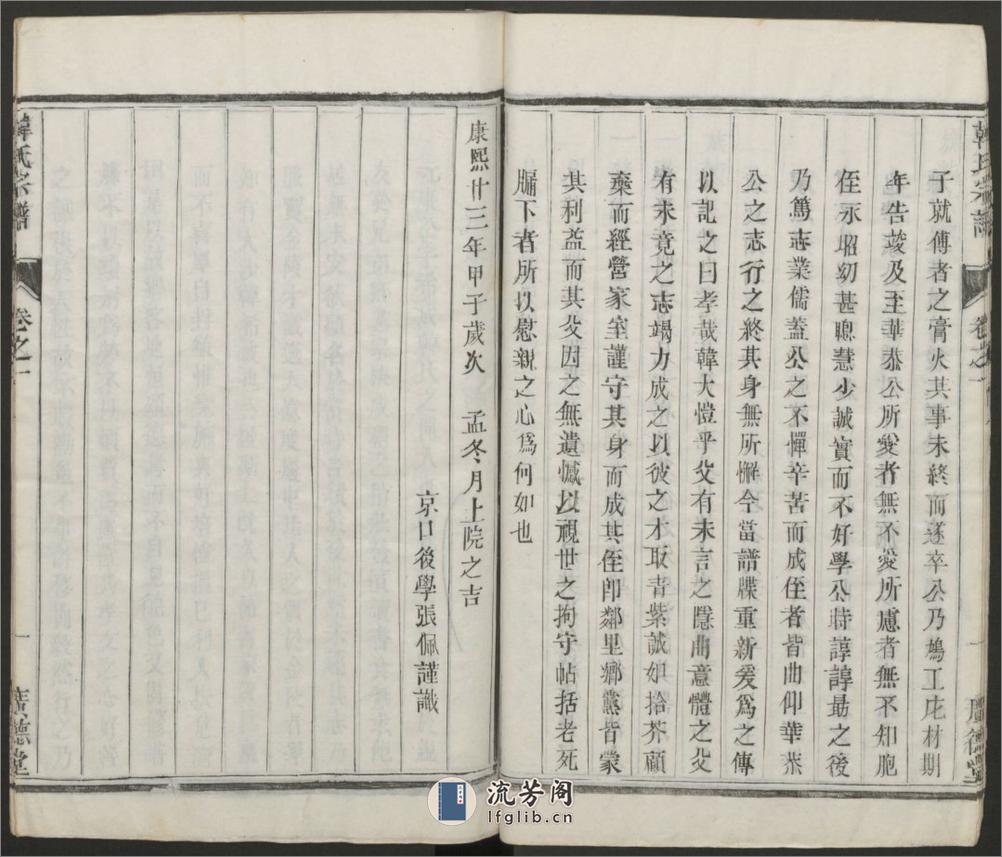 子就傅者之膏火其事未終而遂卒公乃鳩工庀材期
年告竣及至華泰公所愛者無不愛所慮者無不知胞
侄永昭幼甚聰慧少誠實而不好學公時諄諄最之後
乃篤志業儒蓋公之不憚辛苦而成侄者皆曲仰華泰
公之志行之終其身無所懈今當譜牒重新爰爲之傳
以記之曰孝哉韓大愷乎父有未言之隱曲意體之父
有未竟之志竭力成之以彼之才取青紫誠如拾芥顧
棄而經營家室謹守其身而成其侄卽鄰里鄉黨皆蒙
其利益而其父因之無遺憾以視世之拘守帖括老死
牖下者所以慰親之心爲何如也
康熙廿三年甲子歲次 孟冬月上院之吉
京口後學張佩謹識
韓氏宗譜 卷之一 一 廣德堂
流芳阁
lfglib.cn